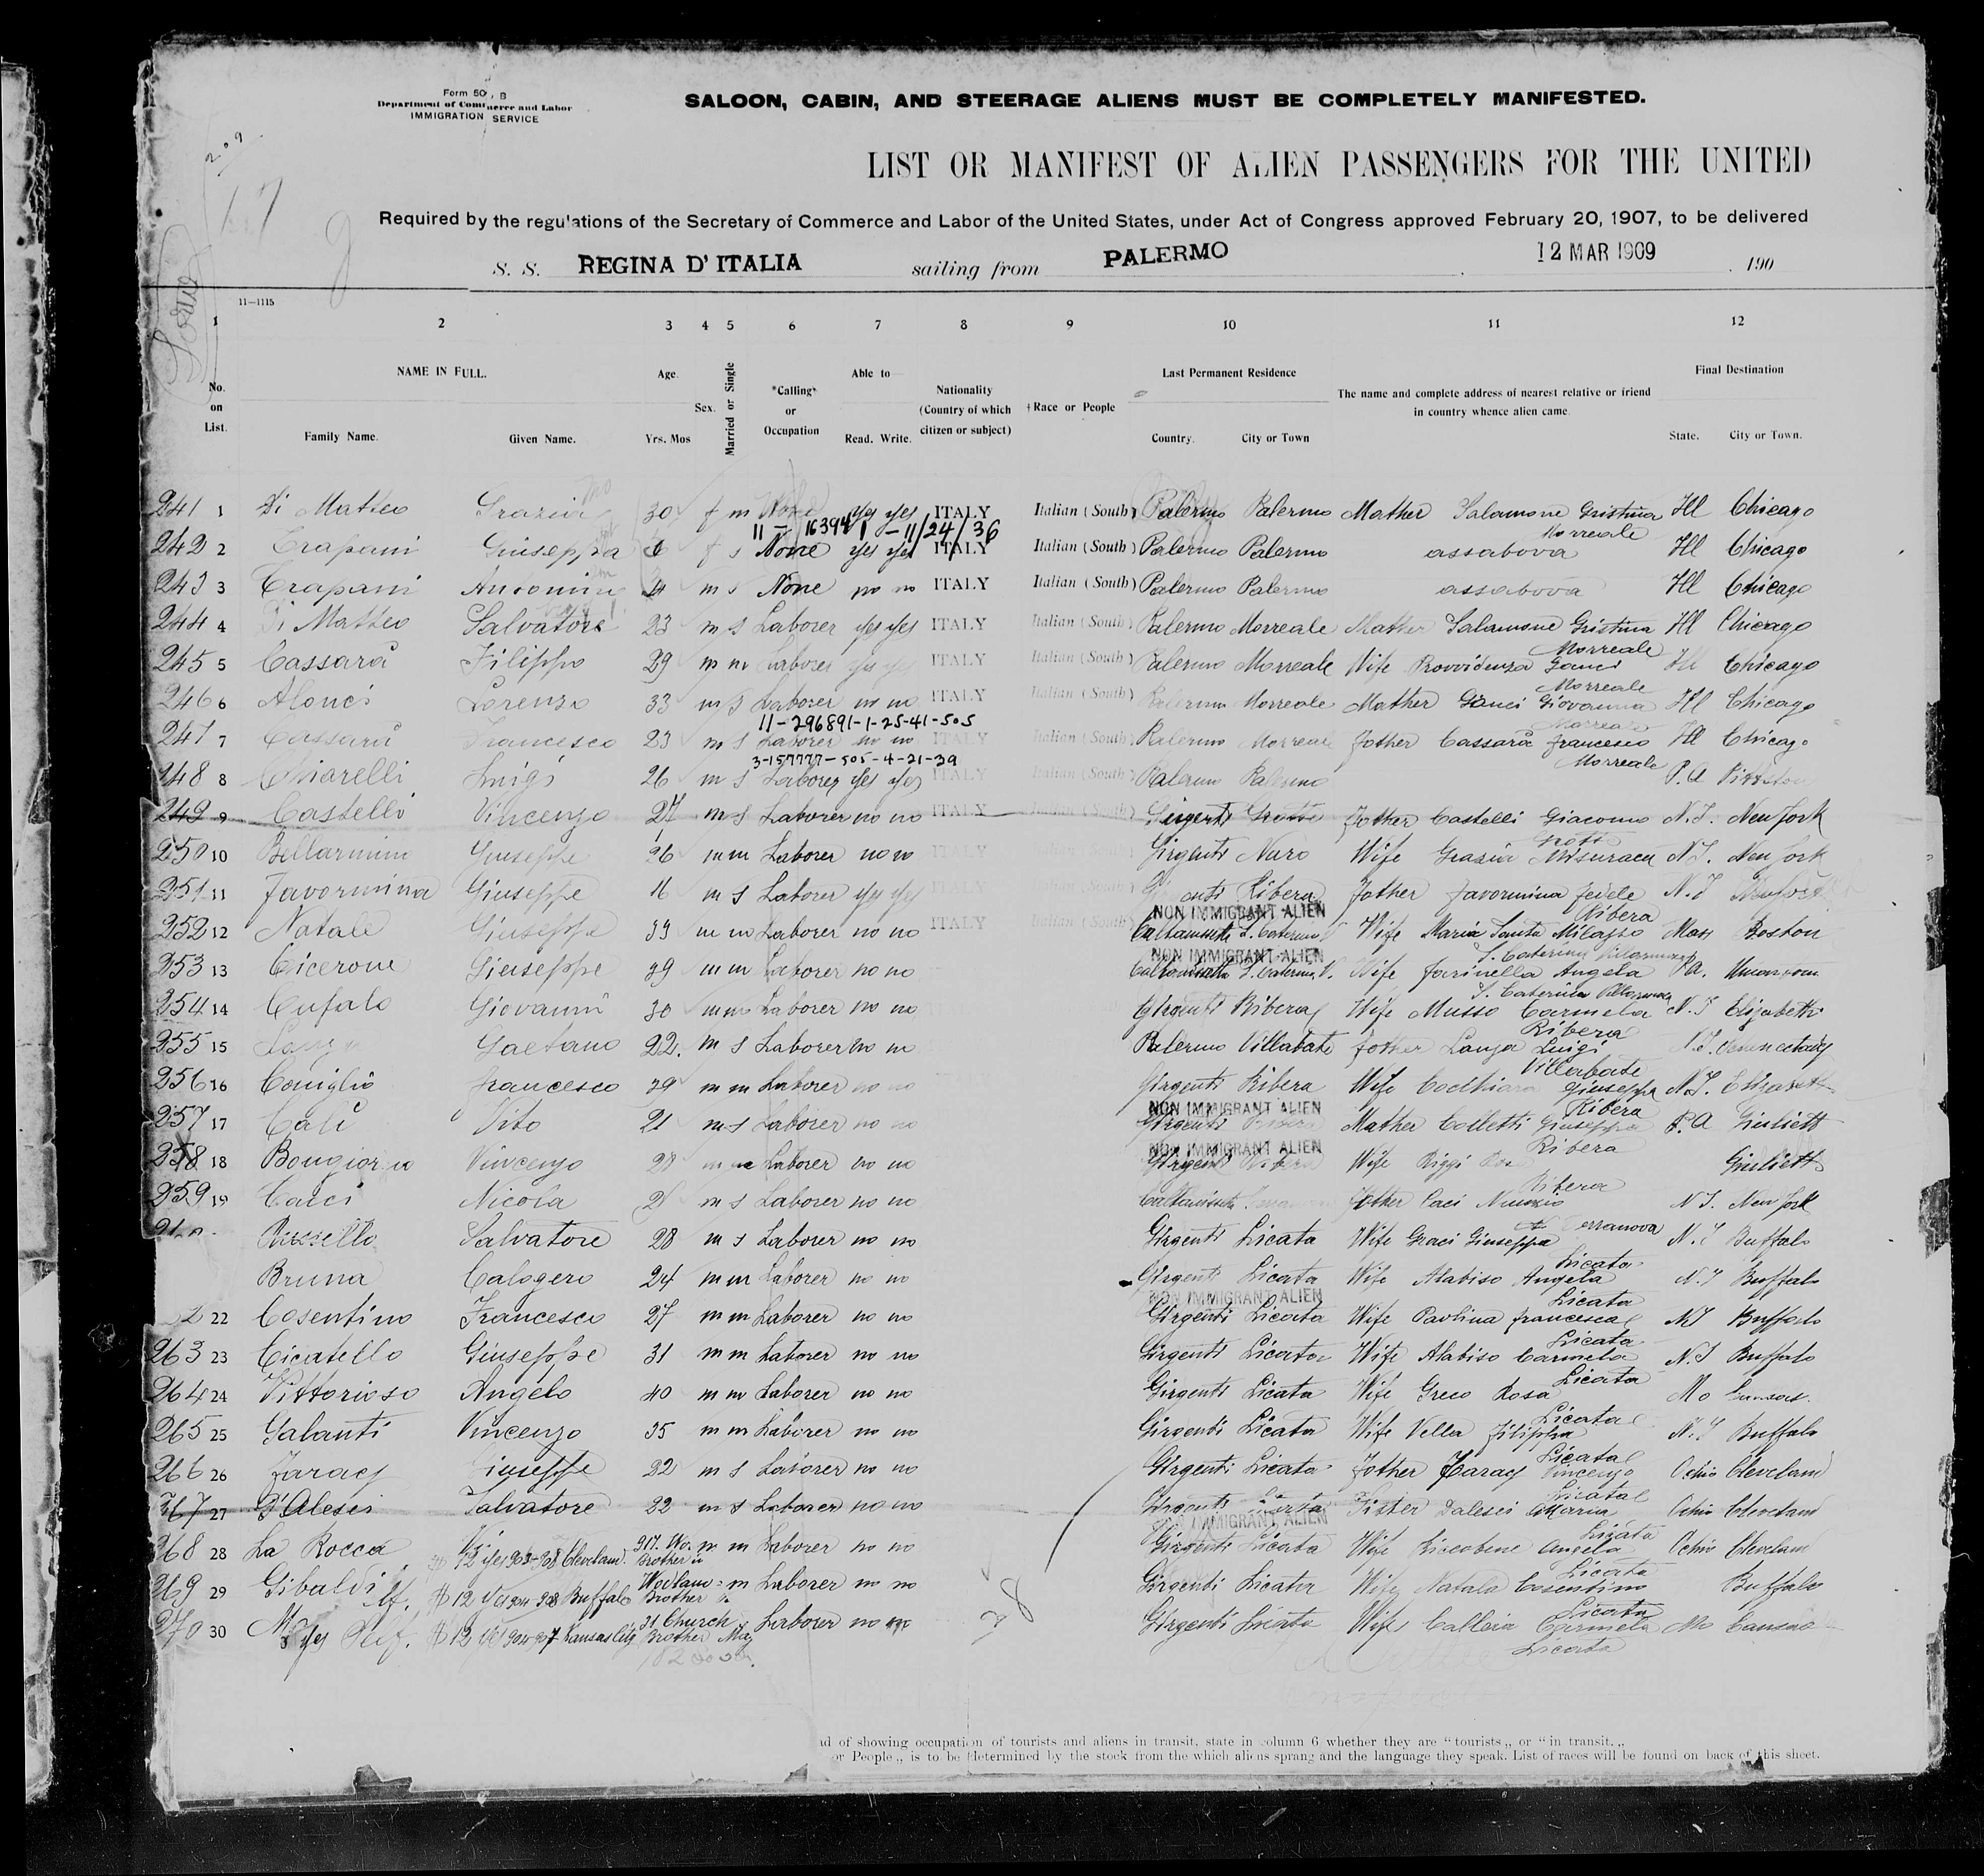 Form 50, B
Department of Commerce and Labor
IMMIGRATION SERVICE
SALOON, CABIN, AND STEERAGE ALIENS MUST BE COMPLETELY MANIFESTED.
LIST OR MANIFEST OF ALIEN PASSENGERS FOR THE UNITED
Required by the regulations of the Secretary of Commerce and Labor of the United States, under Act of Congress approved February 20, 1907, to be delivered
S. S. REGINA D'ITALIA sailing from PALERMO 12 MAR 1909 , 190
11—1115
1 2 3 4 5 6 7 8 9 10 11 12
No. on List. NAME IN FULL. Family Name. Given Name. Age. Yrs. Mos Sex. Married or Single *Calling* or Occupation Able to Read. Write. Nationality (Country of which citizen or subject) †Race or People Last Permanent Residence Country. City or Town The name and complete address of nearest relative or friend in country whence alien came. Final Destination State. City or Town.
241 1 Di Matteo Grazia 30 f m None yes yes ITALY Italian (South) Palermo Palermo Mather Salamone Gristina Ill Chicago
11 — 163941 — 11/24/36 Morreale
242 2 Trapani Giuseppa 6 f s None yes yes ITALY Italian (South) Palermo Palermo assabova Ill Chicago
243 3 Trapani Antonino 4 m s None no no ITALY Italian (South) Palermo Palermo assabova Ill Chicago
244 4 Di Matteo Salvatore 23 m s Laborer yes yes ITALY Italian (South) Palermo Morreale Mather Salamone Gristina Ill Chicago
Morreale
245 5 Cassarà Filippo 29 m m Laborer yes yes ITALY Italian (South) Palermo Morreale Wife Provvidenza Ganci Ill Chicago
Morreale
246 6 Alonci Lorenzo 33 m s Laborer no no ITALY Italian (South) Palermo Morreale Mather Ganci Giovanna Ill Chicago
11-296891-1-25-41-505 Morreale
247 7 Cassarà Francesco 23 m s Laborer no no ITALY Italian (South) Palermo Morreale Father Cassarà Francesco Ill Chicago
3-157777-505-4-21-39 Morreale
248 8 Chiarelli Luigi 26 m s Laborer yes yes ITALY Italian (South) Palermo Palermo P.A
249 9 Castelli Vincenzo 27 m s Laborer no no ITALY Italian (South) Girgenti Grotte Father Castelli Giacomo N.J. New York
Grotte
250 10 Bellarmino Giuseppe 26 m m Laborer no no ITALY Girgenti Naro Wife Grazia Misuraca N.J. New York
251 11 Favormina Giuseppe 16 m s Laborer yes yes Ribera Father Favormina Fedele N.J
NON IMMIGRANT ALIEN Ribera
252 12 Natale Giuseppe 39 m m Laborer no no ITALY Italian (South) Caltanisetta S. Caterina V Wife Maria Santa Milazzo Mass Boston
NON IMMIGRANT ALIEN S. Caterina Villarmosa
253 13 Cicerone Giuseppe 29 m m Laborer no no Caltanisetta S. Caterina V. Wife Farinella Angela P.A.
S. Caterina Villarmosa
254 14 Cufalo Giovanni 30 m m Laborer no no Girgenti Ribera Wife Musso Carmela N.J Elizabeth
Ribera
255 15 Gaetano 22. m s Laborer no no Palermo Villabate Father Lanza Luigi Schenectady
Villabate
256 16 Coniglio Francesco 29 m m Laborer no no Girgenti Ribera Wife Giuseppa N.J. Elizabeth
NON IMMIGRANT ALIEN Ribera
257 17 Cali Vito 21 m s Laborer no no Girgenti Ribera Mather Colletti Giuseppa P.A Giuliett
NON IMMIGRANT ALIEN Ribera
258 18 Bongiorno Vincenzo 28 m m Laborer no no Girgenti Ribera Wife Riggi Giuliett
Ribera
259 19 Caici Nicola m s Laborer no no Caltanisetta Father Caci Nunzio N.J. New York
Terranova
Russello Salvatore 28 m s Laborer no no Girgenti Licata Wife Graci Giuseppa N.J Buffalo
Licata
Bruna Calogero 24 m m Laborer no no Girgenti Licata Wife Alabiso Angela N.J Buffalo
NON IMMIGRANT ALIEN Licata
22 Cosentino Francesco 27 m m Laborer no no Girgenti Licata Wife Paolina Francesca N.J Buffalo
Licata
263 23 Cicatello Giuseppe 31 m m Laborer no no Girgenti Licata Wife Alabiso Carmela N.J Buffalo
Licata
264 24 Vittorioso Angelo 40 m m Laborer no no Girgenti Licata Wife Greco Rosa Mo
Licata
265 25 Galanti Vincenzo 35 m m Laborer no no Girgenti Licata Wife Vella Filippa N.J Buffalo
Licata
266 26 Faracy Giuseppe 22 m s Laborer no no Girgenti Licata Father Faracy Vincenzo Ochio Cleveland
Licata
267 27 D'Alesci Salvatore 22 m s Laborer no no Girgenti Licata Sister Dalesci Maria Ochio Cleveland
NON IMMIGRANT ALIEN Licata
268 28 La Rocca m m Laborer no no Girgenti Licata Wife Liccobene Angela Ochio Cleveland
$ 12 yes 903-908 Cleveland Brother in Licata
269 29 Gibaldi m Laborer no no Girgenti Licata Wife Natala Cosentino Buffalo
$ 12 yes 904-908 Buffalo Brother Licata
270 30 Laborer no no Girgenti Licata Wife Calleia Carmela Mo Cansas
yes $ 12 yes 904-907 Kansas City 31 Church Brother Licata
28
of showing occupation of tourists and aliens in transit, state in column 6 whether they are "tourists,, or "in transit.,,
or People,, is to be determined by the stock from the which aliens sprang and the language they speak. List of races will be found on back of this sheet.